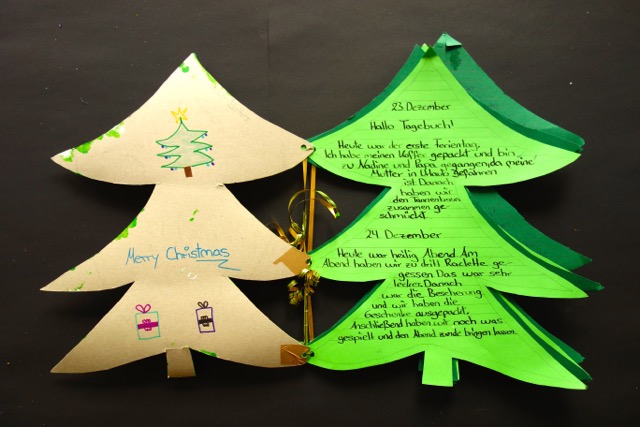 Merry Christmas
23 Dezember
Hallo Tagebuch!
Heute war der erste Ferientag.
Ich habe meinen Koffer gepackt und bin
zu Nadine und Papa gegangen, da meine
Mutter in Urlaub gefahren
ist. Danach
haben wir
den Tannenbaum
zusammen ge-
schmückt.
24 Dezember
Heute war heilig Abend. Am
Abend haben wir zu dritt Raclette ge-
gessen. Das war sehr
lecker. Danach
war die Bescherung
und wir haben die
Geschenke ausgepackt.
Anschließend haben wir noch was
gespielt und den Abend runde bringen lassen.